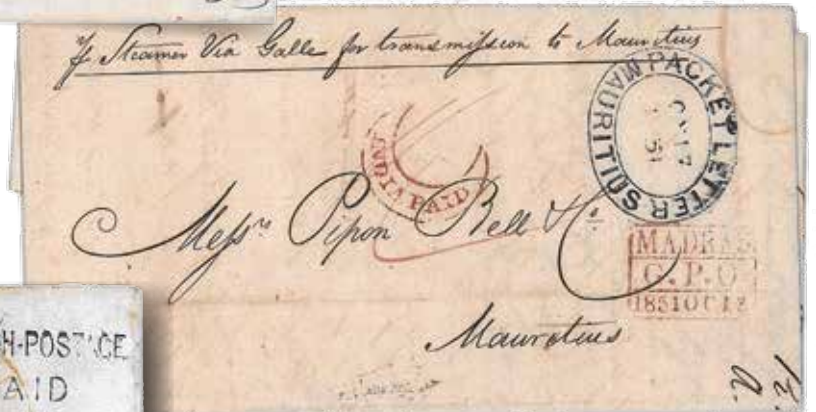 pr Steamer Via Galle for transmission to Mauritius
PACKET LETTER
MAURITIUS
INDIA PAID
Messrs Pipon Bell & Co.
MADRAS
G.P.O
1851 OC
Mauritius
H-POSTAGE
AID